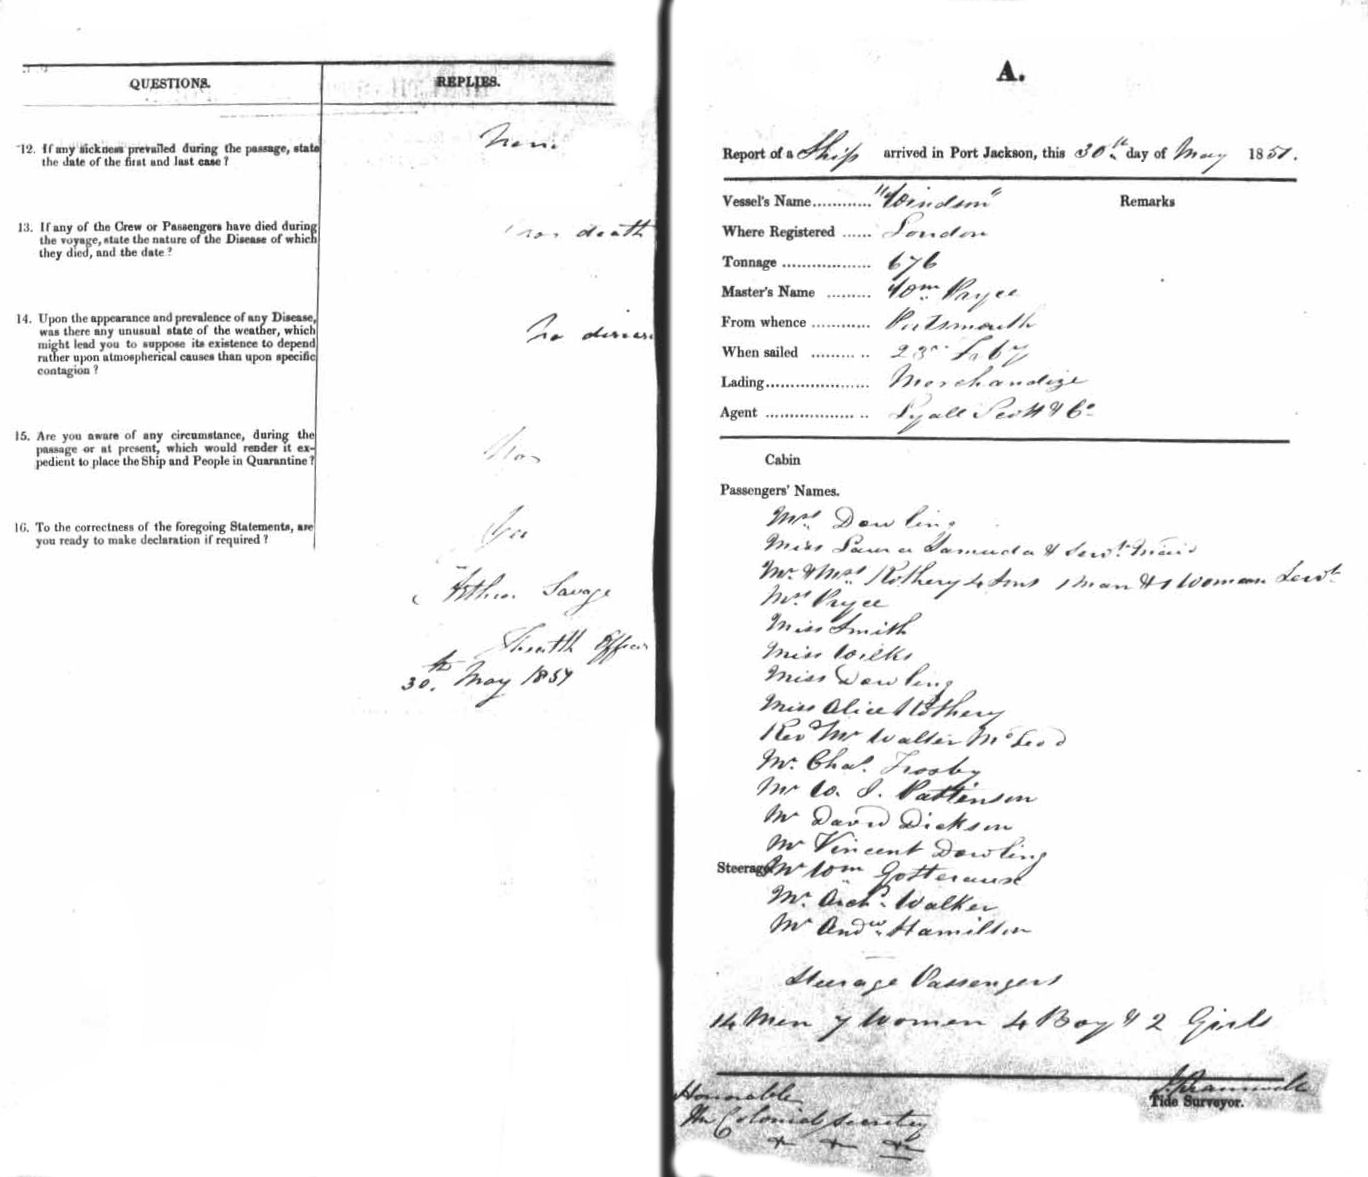 QUESTIONS.
REPLIES.
12. If any sickness prevailed during the passage, state
the date of the first and last case?
None
13. If any of the Crew or Passengers have died during
the voyage, state the nature of the Disease of which
they died, and the date?
death
14. Upon the appearance and prevalence of any Disease,
was there any unusual state of the weather, which
might lead you to suppose its existence to depend
rather upon atmospherical causes than upon specific
contagion?
No diseas
15. Are you aware of any circumstance, during the
passage or at present, which would render it ex-
pedient to place the Ship and People in Quarantine?
16. To the correctness of the foregoing Statements, are
you ready to make declaration if required?
Yes
Arthur Savage
Health Officer
30th May 1851
A.
Report of a Ship arrived in Port Jackson, this 30th day of May 1851.
Vessel's Name............ "Windsor" Remarks
Where Registered ...... London
Tonnage .................. 676
Master's Name ......... Wm Pryce
From whence ............ Portsmouth
When sailed ........... 23rd Feby
Lading..................... Merchandize
Agent .................... Lyall Scott & Co
Cabin
Passengers' Names.
Mrs Dowling
Miss Laura Samuda & Servt. Maid
Mr. & Mrs Rothery 4 Sons 1 Man & 1 Woman Servt
Mrs Pryce
Miss Smith
Miss Wilks
Miss Dowling
Miss Alice Rothery
Revd Mr Walter McLeod
Mr. Chas.
Mr W. J. Pattenson
Mr David Dickson
Mr Vincent Dowling
Steerage Mr Wm
Mr. Archd. Walker
Mr Andw. Hamilton
Steerage Passengers
14 Men 7 Women 4 Boy & 2 Girls
Tide Surveyor.
Honorable
The Colonial Secretary